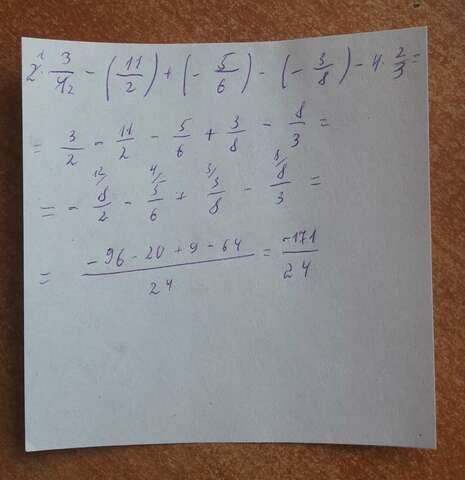 2¹ · 3/4₂ − (11/2) + (− 5/6) − (− 3/8) − 4 · 2/3 =
= 3/2 − 11/2 − 5/6 + 3/8 − 8/3 =
= − 12/ 8/2 − 4/ 5/6 + 3/ 3/8 − 8/ 8/3 =
= (−96 − 20 + 9 − 64)/24 = −171/24